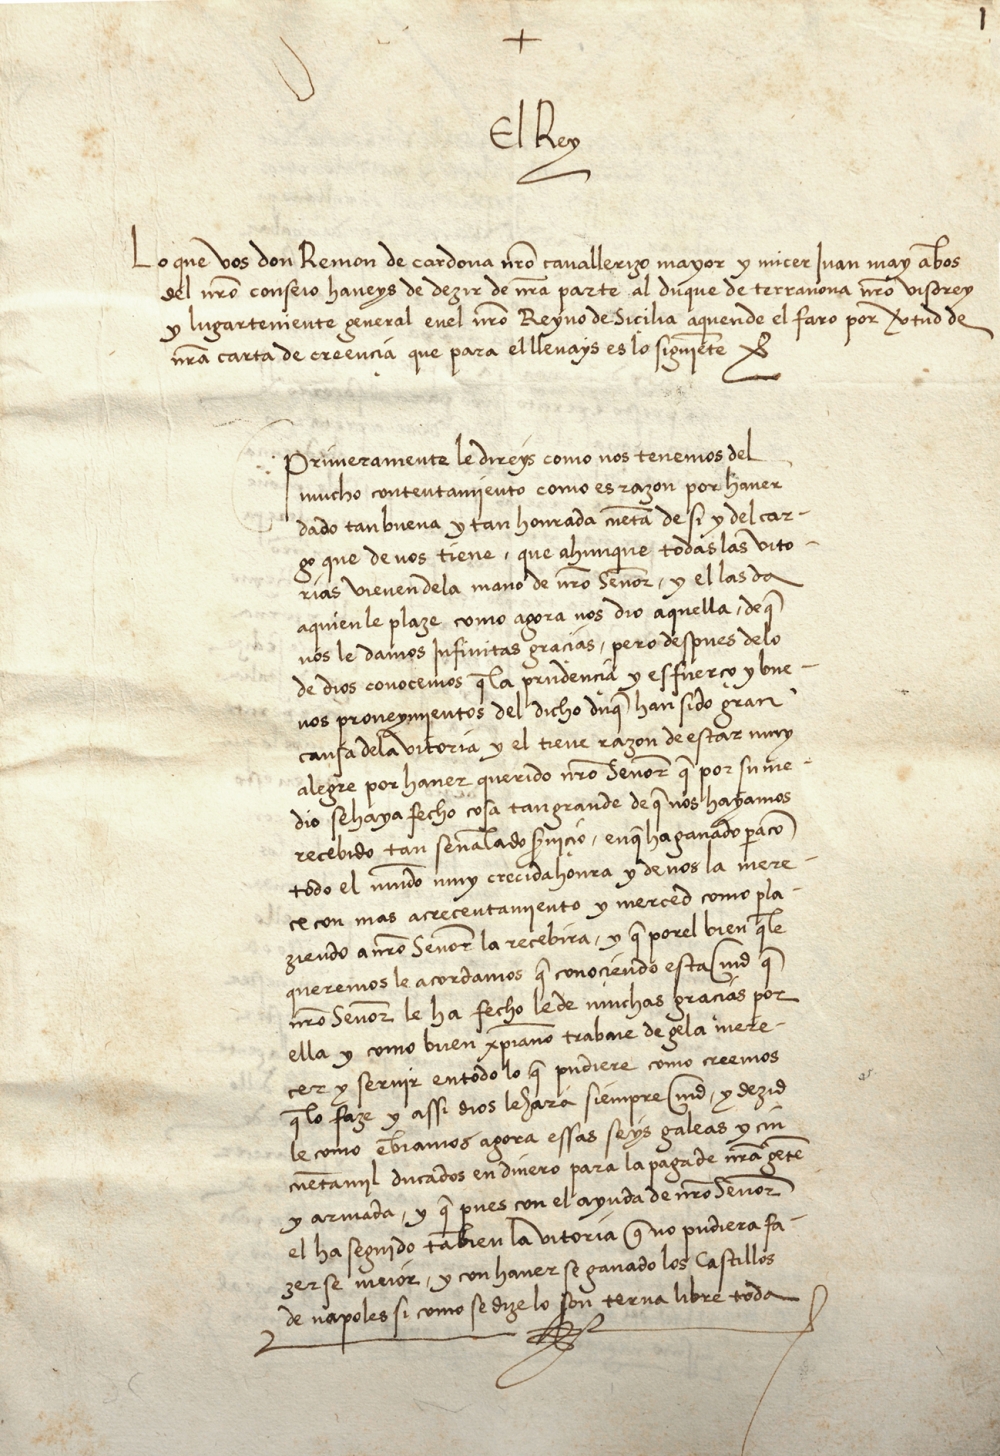 1
+
El Rey
Lo que vos don Remon de cardona nr̃o cavallerizo mayor y micer Juan may ãbos
del nr̃o conseio haueys de dezir de nr̃a parte al duque de terranoua nr̃o visorey
y lugarteniente general enel nr̃o Reyno de Sicilia aquende el faro por Vtud de
nr̃a carta de creencia que para el lleuays es lo siguiẽte
Primeramente le direys como nos tenemos del
mucho contentamiento como es razon por hauer
dado tan buena y tan honrada cuẽta de si y del car-
go que de nos tiene, que ahunque todas las vito-
rias vienen dela mano de nr̃o Señor, y el las da
aquien le plaze como agora nos dio aquella, de q̃
nos le damos Infinitas gracias, pero despues delo
de dios conocemos q̃ la prudencia y esfuerço y bue-
nos proueymientos del dicho duq̃ han sido gran
causa dela vitoria y el tiene razon de estar muy
alegre por hauer querido nr̃o Señor q̃ por su me-
dio se haya fecho cosa tan grande de q̃ nos hayamos
recebido tan señalado s̃uicio, en q̃ ha ganado p̃a cõ
todo el mũdo muy crecida honra y de nos la mere-
ce con mas acrecentamiento y merced como pla-
ziendo a nr̃o Señor la recebira, y q̃ por el bien q̃ le
queremos le acordamos q̃ conociendo esta md̃ q̃
nr̃o Señor le ha fecho le de muchas gracias por
ella y como buen xp̃iano trabaie de gela mere-
cer y seruir en todo lo q̃ pudiere como creemos
q̃ lo faze y assi dios le hara siempre md̃, y dezid
le como ẽbiamos agora essas seys galeas y cin
cuẽta mil ducados en dinero para la paga de nr̃a gẽte
y armada, y q̃ pues con el ayuda de nr̃o Señor
el ha seguido tãbien la vitoria q̃ no pudiera fa-
zerse meior, y con hauer se ganado los Castillos
de napoles si como se dize lo son terna libre toda